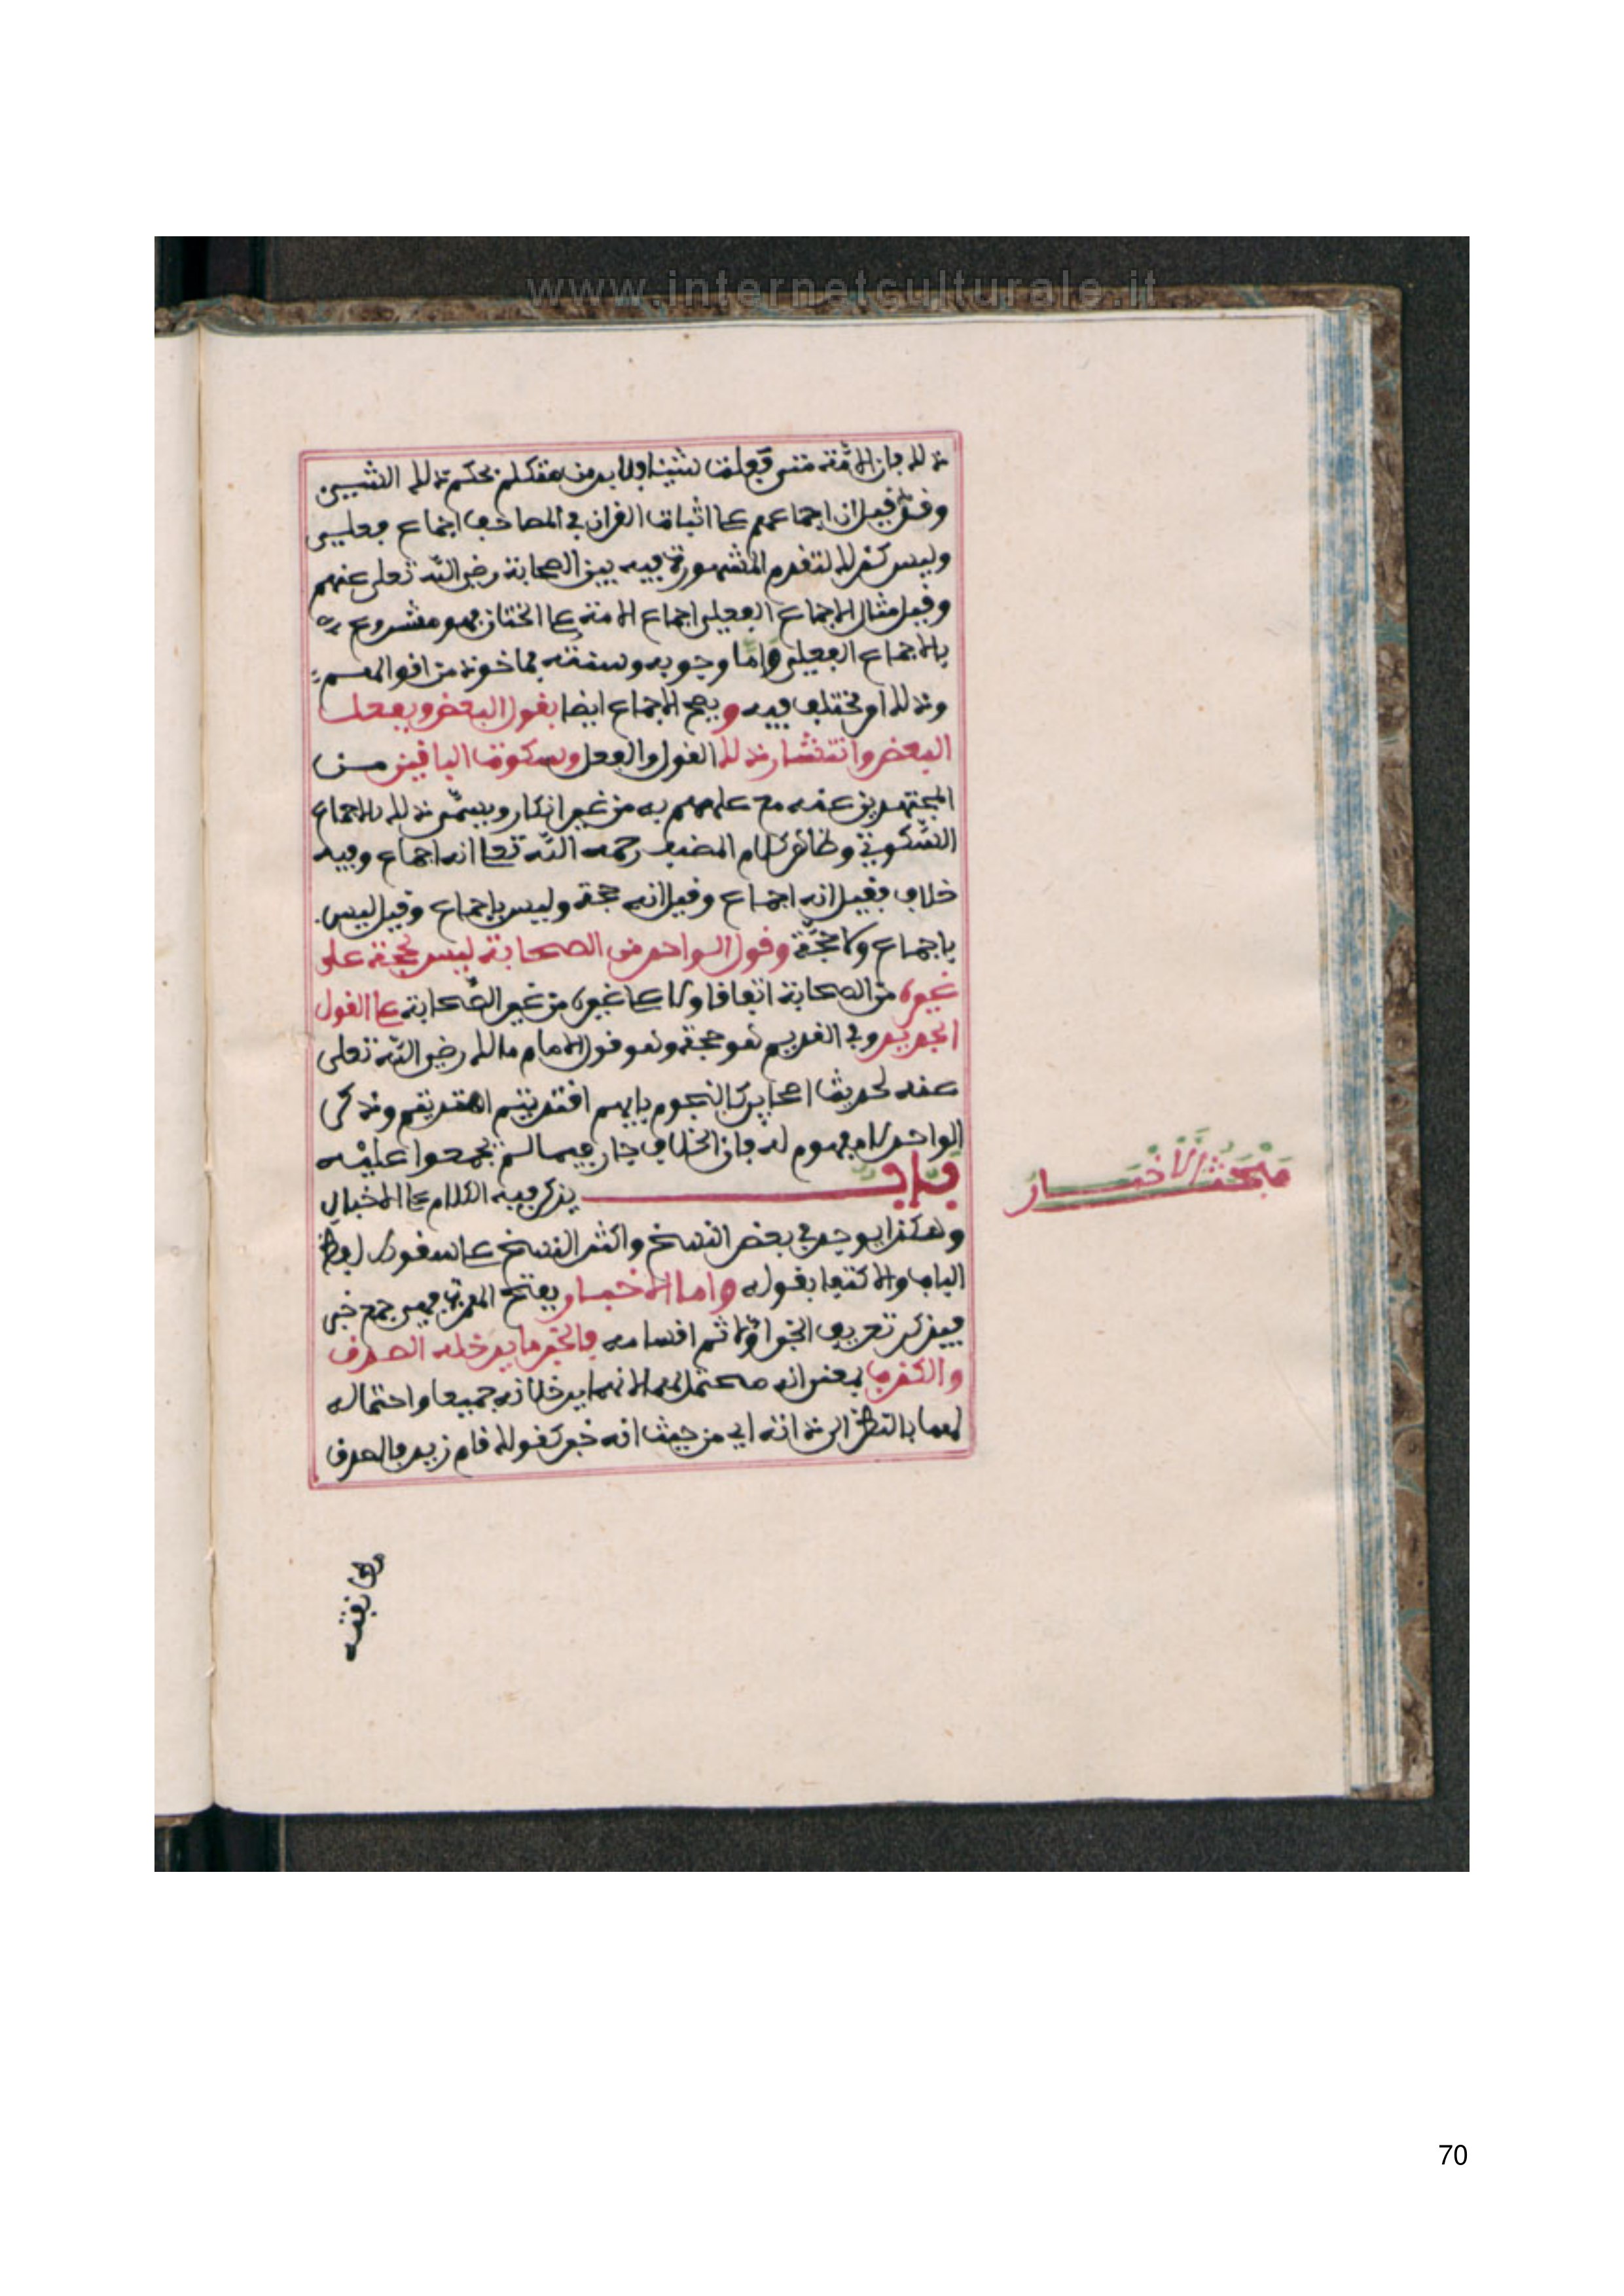 www.internetculturale.it
ذلك فان الامّة متى فعلت شيئا ولا بد من متكلم بحكم ذلك الشيء
وقد قيل ان اجماعهم على اثبات القران في المصاحف اجماع فعلي
وليس كذلك لتقدم المشهورة فيه بين الصحابة رضي الله تعلى عنهم
وقيل مثال الاجماع الفعلي اجماع الامة على الختان فهو مشروع
بالاجماع الفعلي واما وجوبه وسنته فماخوذ من اقوالهم
وذلك امر مختلف فيه ويصح الاجماع ايضا بقول البعض وبفعل
البعض وانتشار ذلك القول والفعل وسكوت الباقين من
المجتهدين عنه مع علمهم به من غير انكار ويسمّى ذلك بالاجماع
السّكوتي وظاهر كلام المصنف رحمه الله تعا انه اجماع وفيه
خلاف فقيل انه اجماع وقيل انه حجة وليس باجماع وقيل ليس
باجماع ولا حجّة وقول الواحد من الصحابة ليس بحجة على
غيره من الصحابة اتفاقا ولا على غيره من غير الصّحابة على القول
الجديد وفي القديم هو حجة وهو قول الامام مالك رضي الله تعلى
عنه لحديث اصحابي كالنجوم بايهم اقتديتم اهتديتم وذكر
الواحد لا مفهوم له فان الخلاف جار فيما لم يجمعوا عليه
باب يذكر فيه الكلام على الاخبار
وهكذا يوجد في بعض النسخ واكثر النسخ على سقوط لفظ
الباب والاكتفا بقوله واما الاخبار بفتح الهمزة فهي جمع خبر
فيذكر تعريف الخبر اولا ثم اقسامه فالخبر ما يدخله الصدق
والكذب بمعنى انه محتمل لهما لانهما يدخلانه جميعا واحتماله
لهما بالنظر الى ذاته اي من حيث انه خبر كقولك قام زيد فالصدق
مَبْحَثُ الْأَخْبَـارِ
70